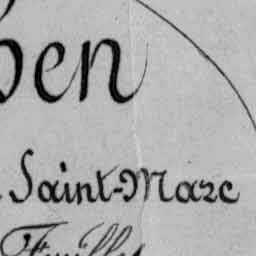 ben
Saint-Marc
Feuilles